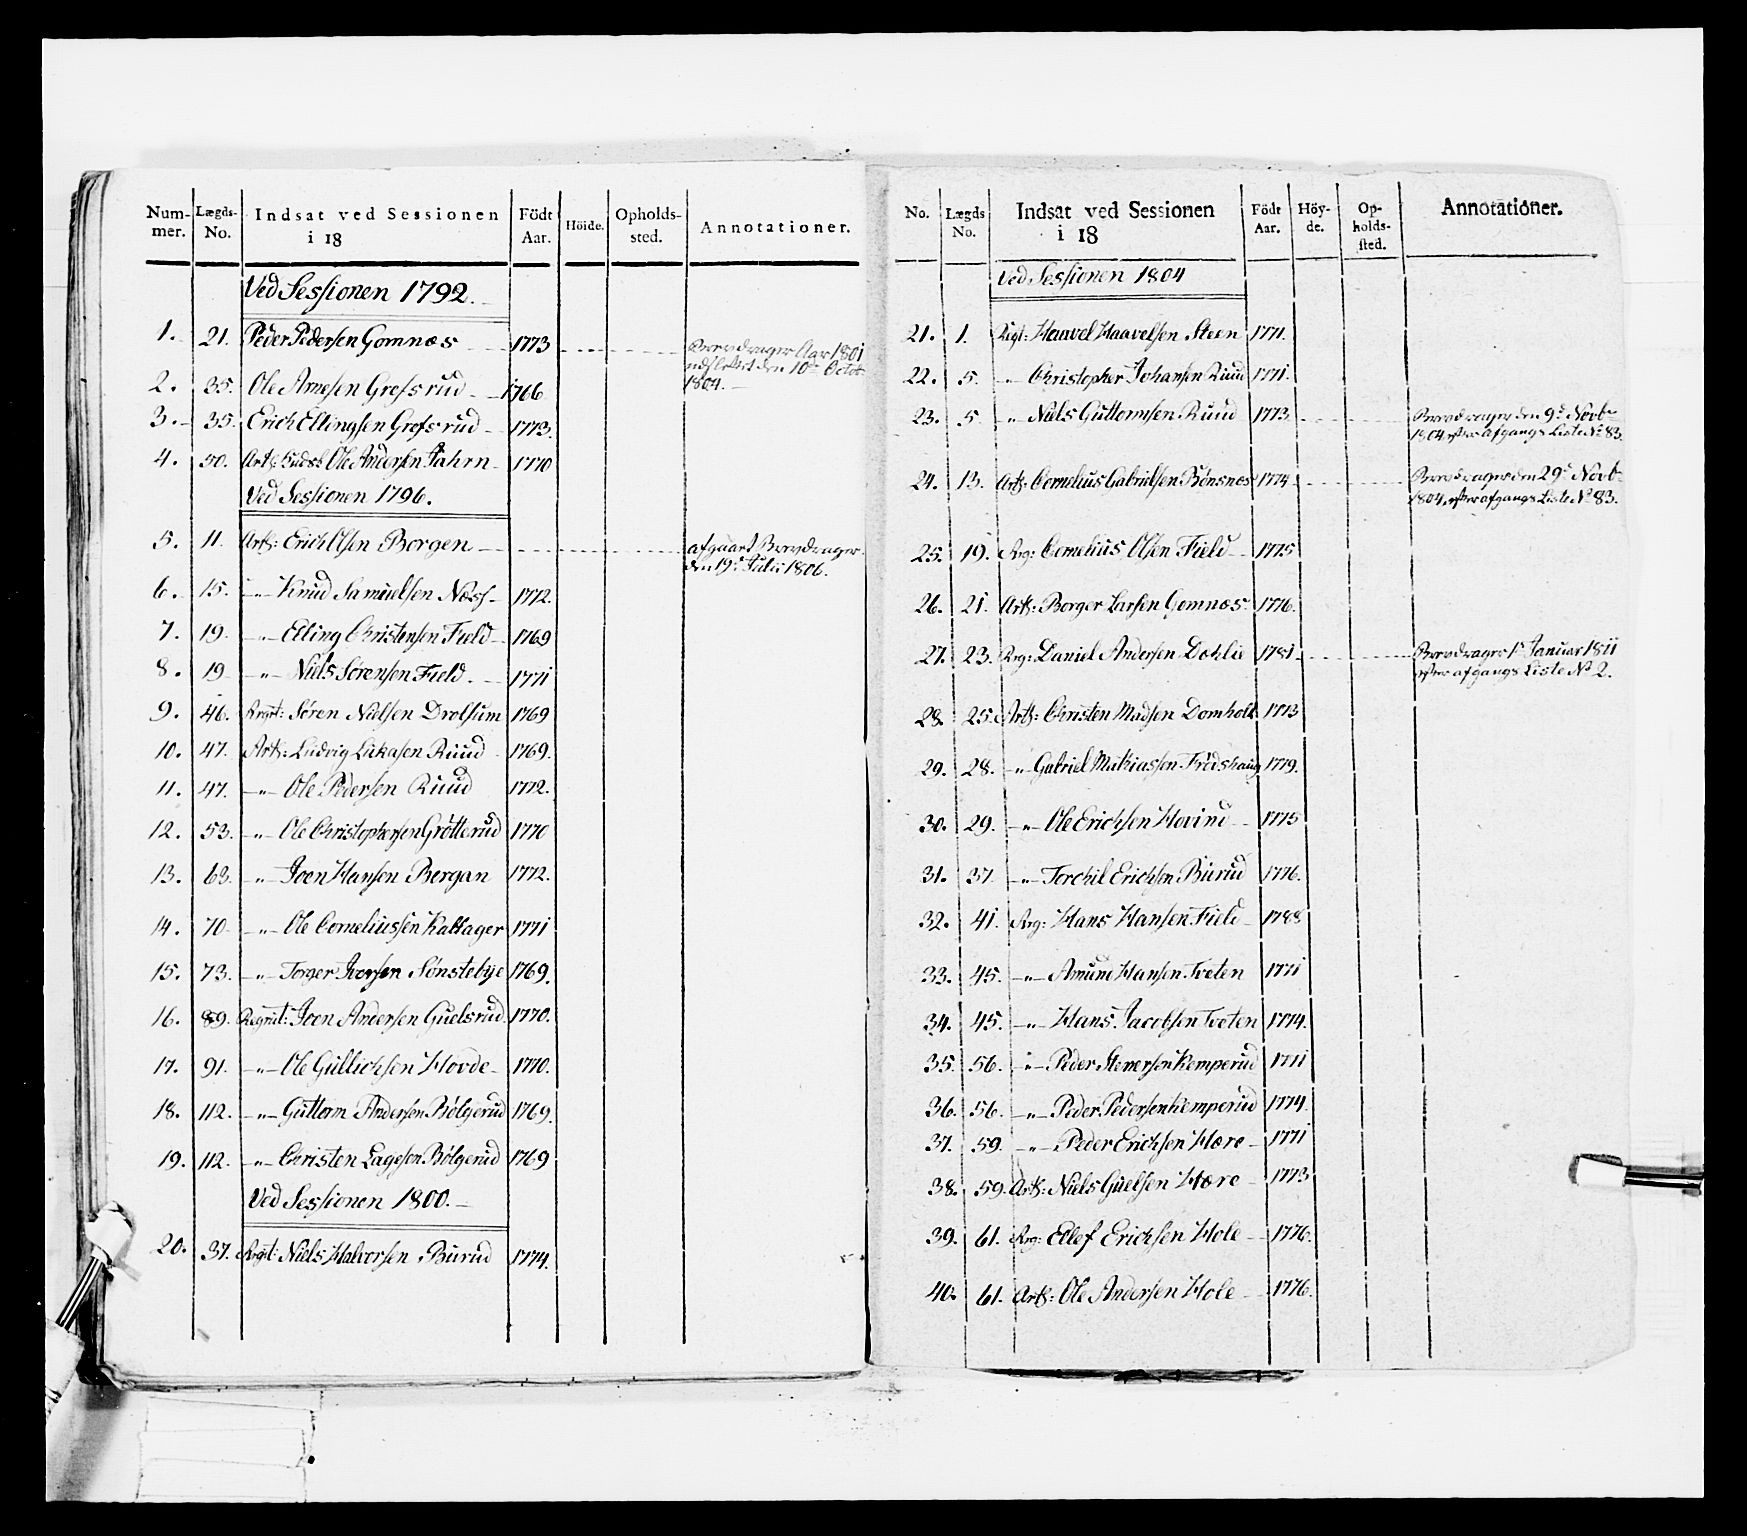 Num- Lægds- Indsat ved Sessionen Födt Höide. Opholds- Annotationer.
mer. No. i 18 Aar. sted.
Ved Sessionen 1792.
1. 21. Peder Pedersen Gomnæs 1773 Brevdrager Aar 1801
udslettet den 10de Octob:
1804.
2. 35. Ole Arnesen Grefsrud 1766
3. 35. Erich Ellingsen Grefsrud 1773.
4. 50. Art: Ole Andersen Jahrn 1770
Ved Sessionen 1796.
5. 11. Art: Erich Olsen Borgen afgaaet Brevdrager
den 19de Julii 1806.
6. 15. -"- Knud Samuelsen Næss 1772.
7. 19. -"- Elling Christensen Field 1769
8. 19 -"- Niels Sørensen Field. 1771
9. 46. Regt: Søren Nielsen Drolsum 1769
10. 47. Art: Ludvig Lukasen Ruud 1769.
11. 47. -"- Ole Pedersen Ruud 1772.
12. 53. -"- Ole Christophersen Grøtterud 1770
13. 63. -"- Joen Hansen Bergan 1772.
14. 70 -"- Ole Corneliussen Kattager 1771
15. 73. -"- Torger Iversen Sønstebye 1769.
16. 89. Regmt: Joen Andersen Guelsrud 1770.
17. 91. -"- Ole Gullichsen Hovde 1770.
18. 112. -"- Guttorm Andersen Bølgerud 1769.
19. 112. -"- Christen Lagesen Bølgerud 1769
Ved Sessionen 1800.
20. 37. Regt: Niels Halvorsen Burud 1774.
No. Lægds Indsat ved Sessionen Födt Höy- Op- Annotationer.
No. i 18 Aar. de. holds-
sted.
Ved Sessionen 1804
21. 1. Regt: Haavel Haavelsen Steen 1771.
22. 5. -"- Christopher Johansen Ruud 1771.
23. 5 -"- Niels Guttormsen Ruud 1773. Brevdrager den 9de Novbr
1804, efter afgangs Liste No 83.
24. 13. Art: Cornelius Gabrielsen Bønsnæs 1774 Brevdrager den 29de Novb
1804, efter afgangs Liste No 83.
25. 19. Reg: Cornelius Olsen Field 1775
26. 21. Art: Borger Larsen Gomnæs 1776.
27. 23. Reg: Daniel Andersen Dohlie 1781 Brevdrager 1te Januar 1811
efter afgangs Liste No 2.
28. 25. Art: Christen Madsen Domholt 1773
29. 28. -"- Gabriel Mathiassen Fridshaug 1779.
30. 29. -"- Ole Erichsen Hovind 1775
31. 37 -"- Torchil Erichsen Burud 1776.
32. 41. Reg: Hans Hansen Field 1788
33. 45. -"- Amund Hansen Tveten 1771
34. 45. -"- Hans Jacobsen Tveten 1774.
35. 56. -"- Peder Stenersen Kemperud 1771
36. 56. -"- Peder Pedersen Kemperud 1774.
37. 59. -"- Peder Erichsen Hære 1771
38. 59. Art: Niels Guelsen Hære 1773
39. 61. Reg: Ellef Erichsen Hole 1776.
40. 61. Art: Ole Andersen Hole 1776.